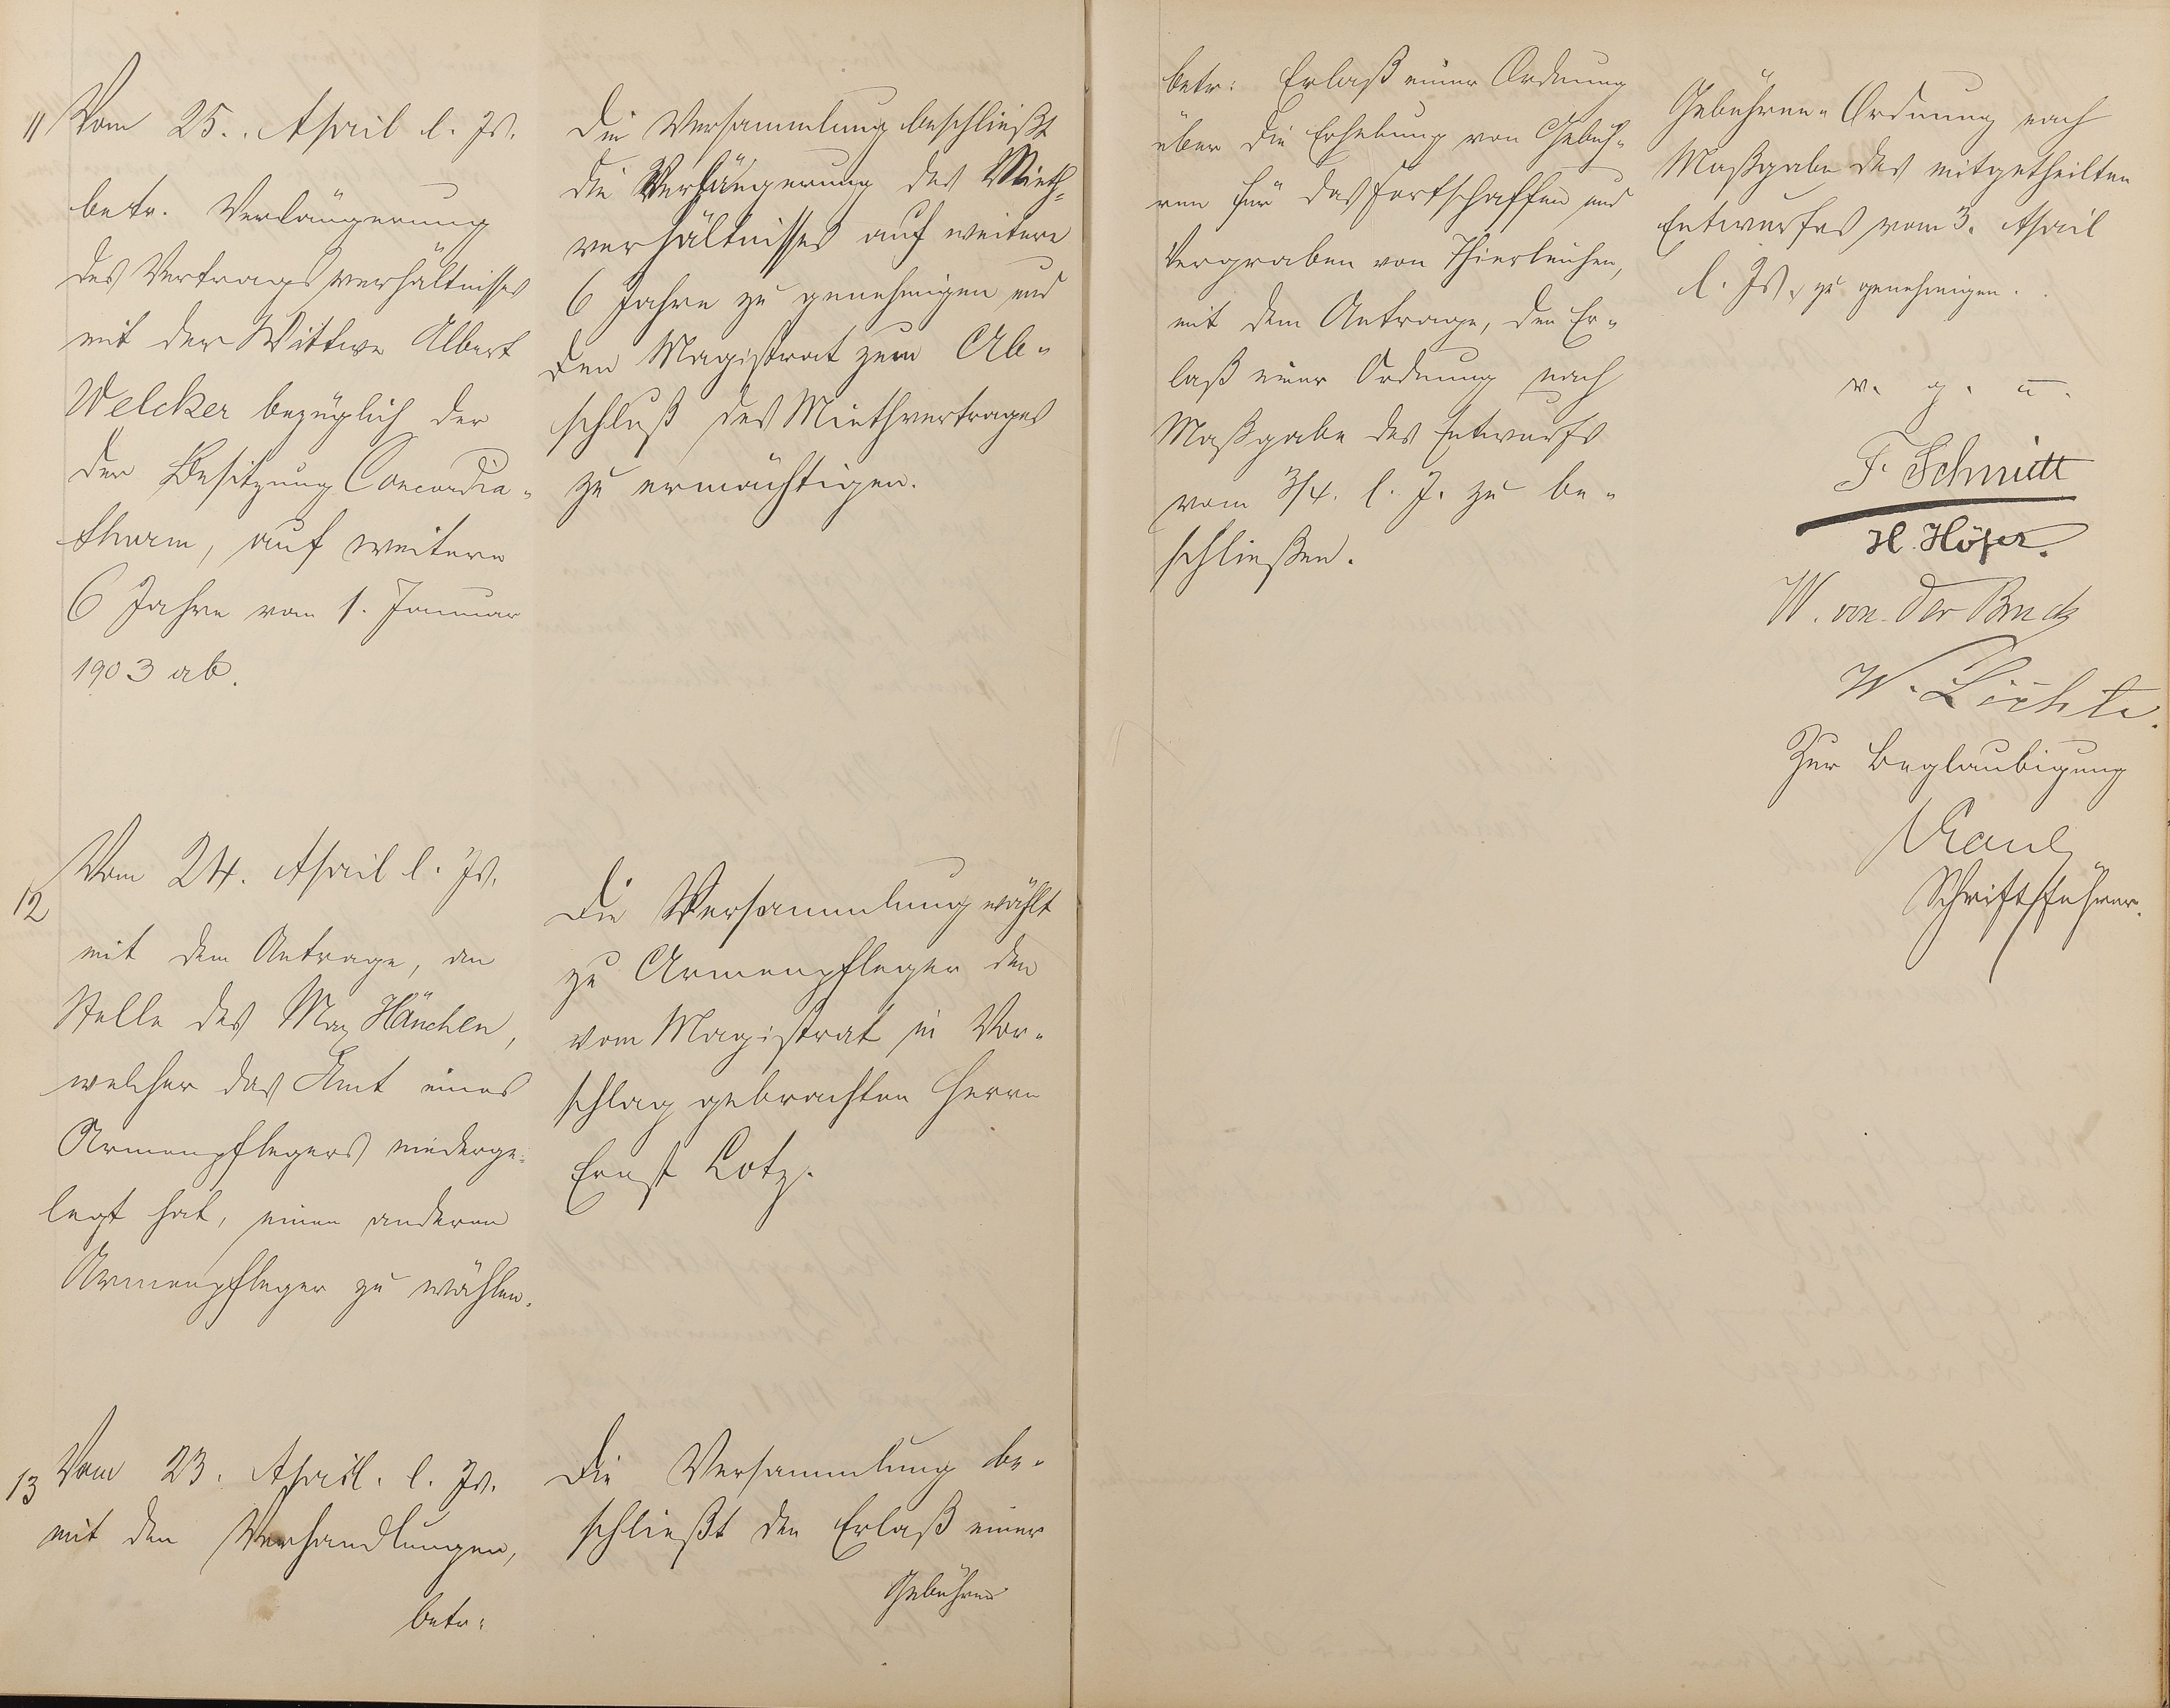 11
Vom 25. April l. Js.
betr. Verlängerung
des Vertragsverhältnisses
mit der Wittwe Albert
Welcker bezüglich der
der Besitzung Concordia-
thurm, auf weitere
6 Jahre vom 1. Januar
1903 ab.
Die Versammlung beschließt
die Verlängerung des Mieth-
verhältnisses auf weitere
6 Jahre zu genehmigen und
den Magistrat zum Ab-
schluß des Miethvertrages
zu ermächtigen.
12
Vom 24. April l. Js.
mit dem Antrage, an
Stelle des Max Hänchen,
welcher das Amt eines
Armenpflegers niederge-
legt hat, einen anderen
Armenpfleger zu wählen.
Die Versammlung wählt
zu Armenpfleger den
vom Magistrat in Vor-
schlag gebrachten Herrn
Ernst Lotz.
13
Vom 23. April. l. Js.
mit den Verhandlungen,
betr:
Die Versammlung be-
schließt den Erlaß einer
Gebühren
betr: Erlaß einer Ordnung
über die Erhebung von Gebüh-
ren für das Fortschaffen und
Vergraben von Thierleichen,
mit dem Antrage, den Er-
laß einer Ordnung nach
Maßgabe des Entwurfs
vom 3/4. l. J. zu be-
schließen.
Gebühren-Ordnung nach
Maßgabe des mitgetheilten
Entwurfes vom 3. April
l. Js. zu genehmigen.
v. g. u.
F. Schmitt
H. Höfer.
W. von der Bruck
W. Lichte.
Zur Beglaubigung
Schriftführer.